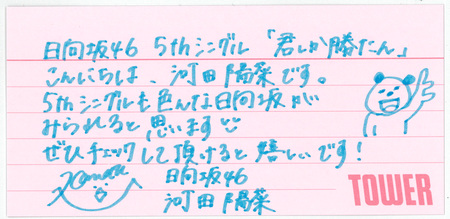 日向坂46 5thシングル 「君しか勝たん」
こんにちは、河田陽菜です。
5thシングルも色んな日向坂が
みられると思います
ぜひチェックして頂けると嬉しいです！
日向坂46
河田陽菜
TOWER